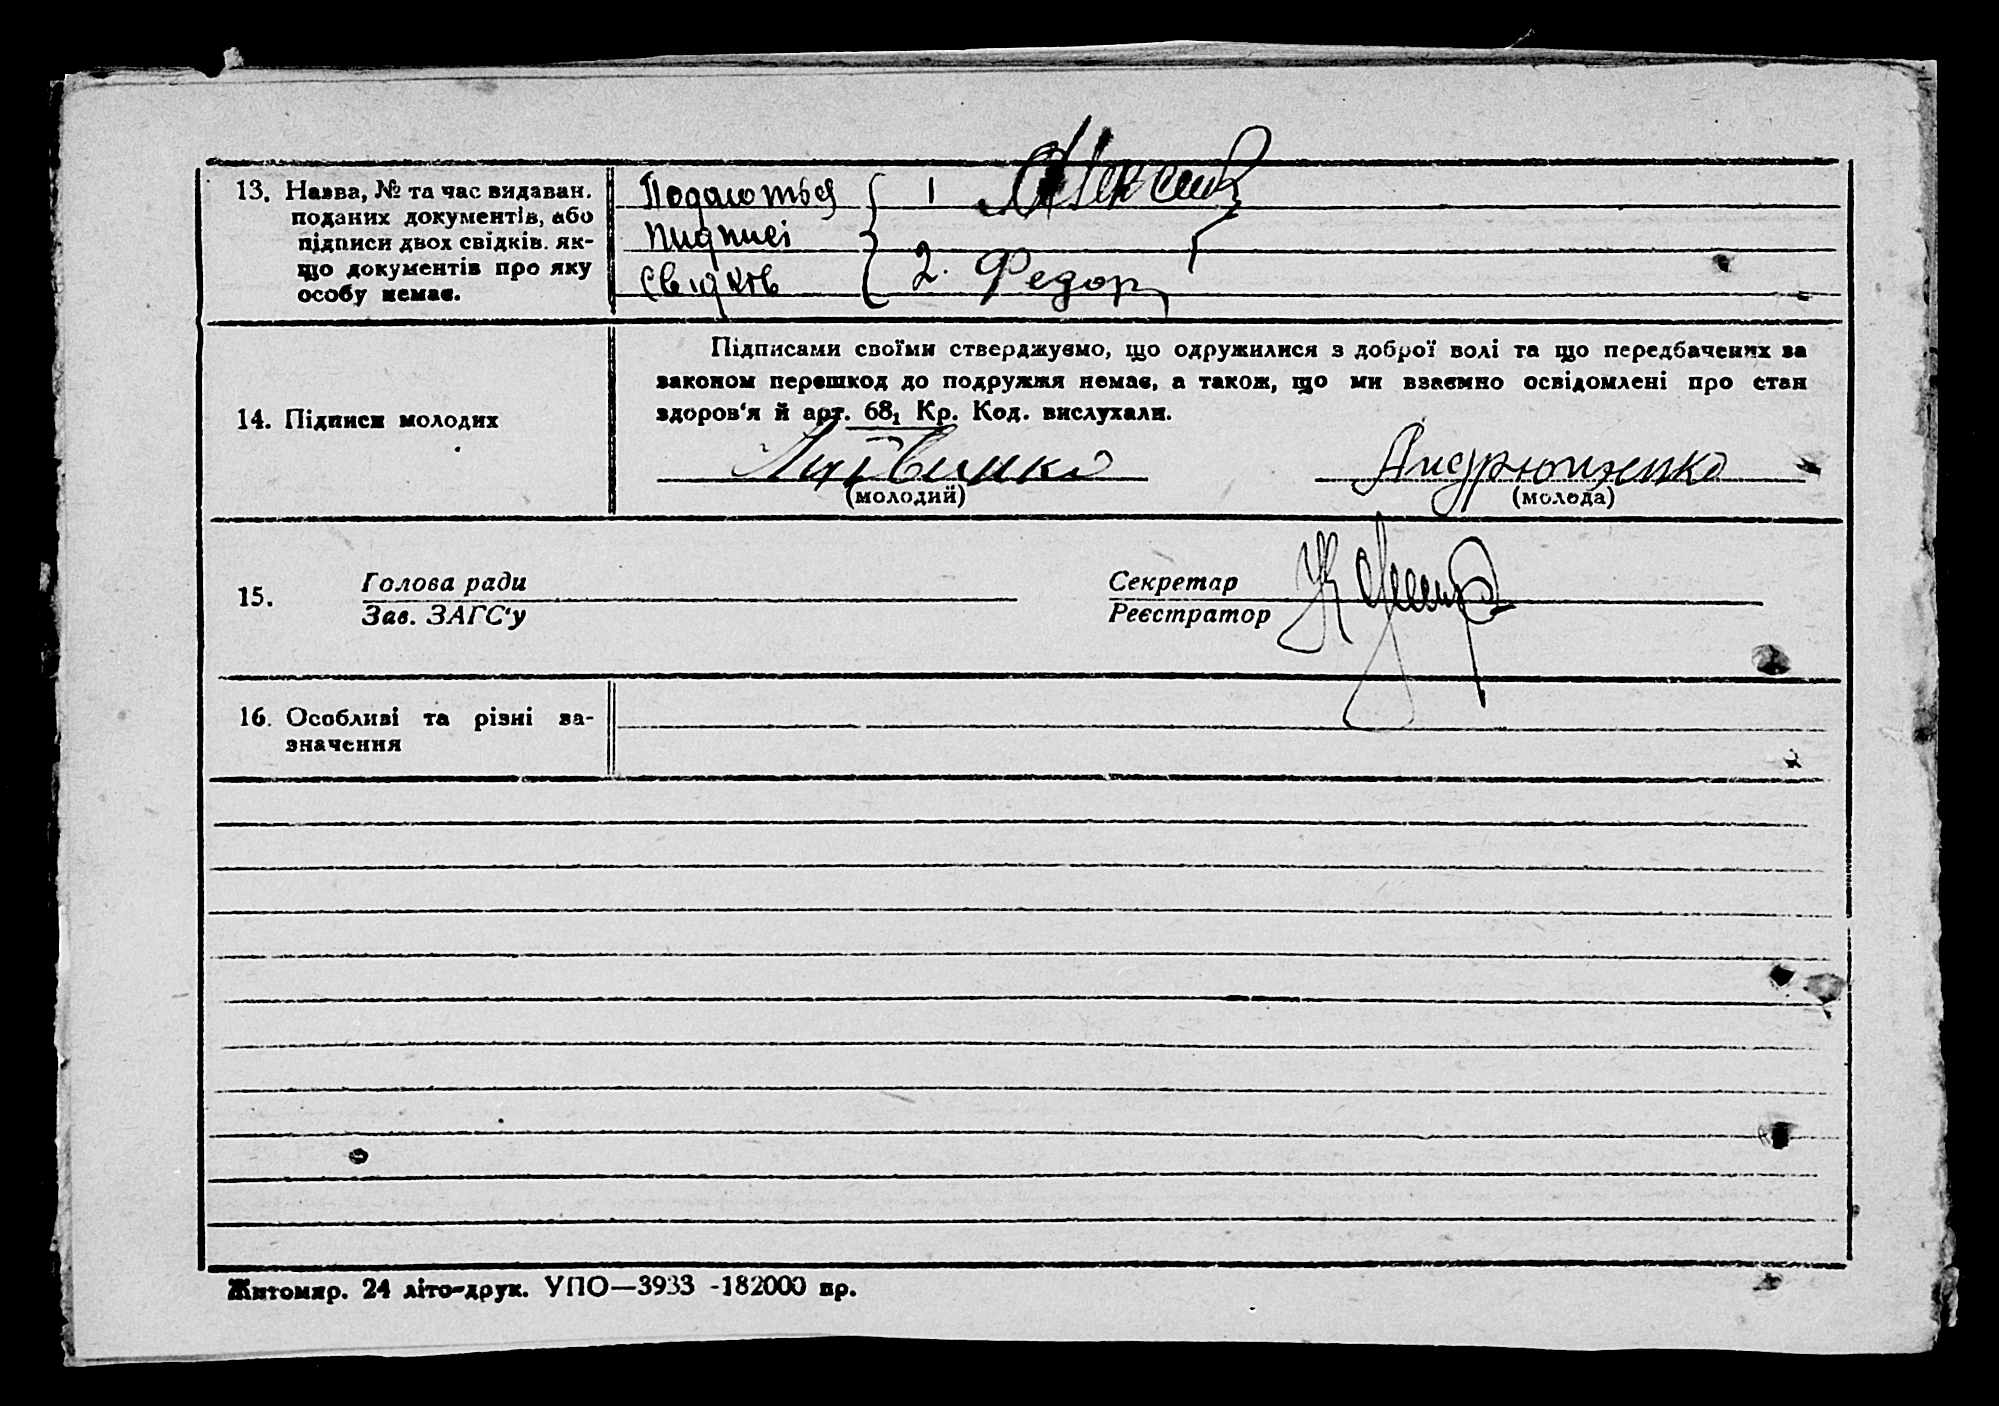 13. Назва, № та час видаван.
поданих документів, або
підписи двох свідків, як-
що документів про яку
особу немає.
Подаються
пидписі
свідків
1
2. Федор
Підписами своїми стверджуємо, що одружилися з доброї волі та що передбачених за
законом перешкод до подружжя немає, а також, що ми взаємно освідомлені про стан
здоров'я й арт. 68₁ Кр. Код. вислухали.
14. Підписи молодих
Литвинко
Андрющенко
(молодий)
(молода)
15.
Голова ради
Зав. ЗАГС'у
Секретар
Реєстратор
16. Особливі та різні за-
значення
Житомир. 24 літо-друк. УПО—3933 -182000 пр.